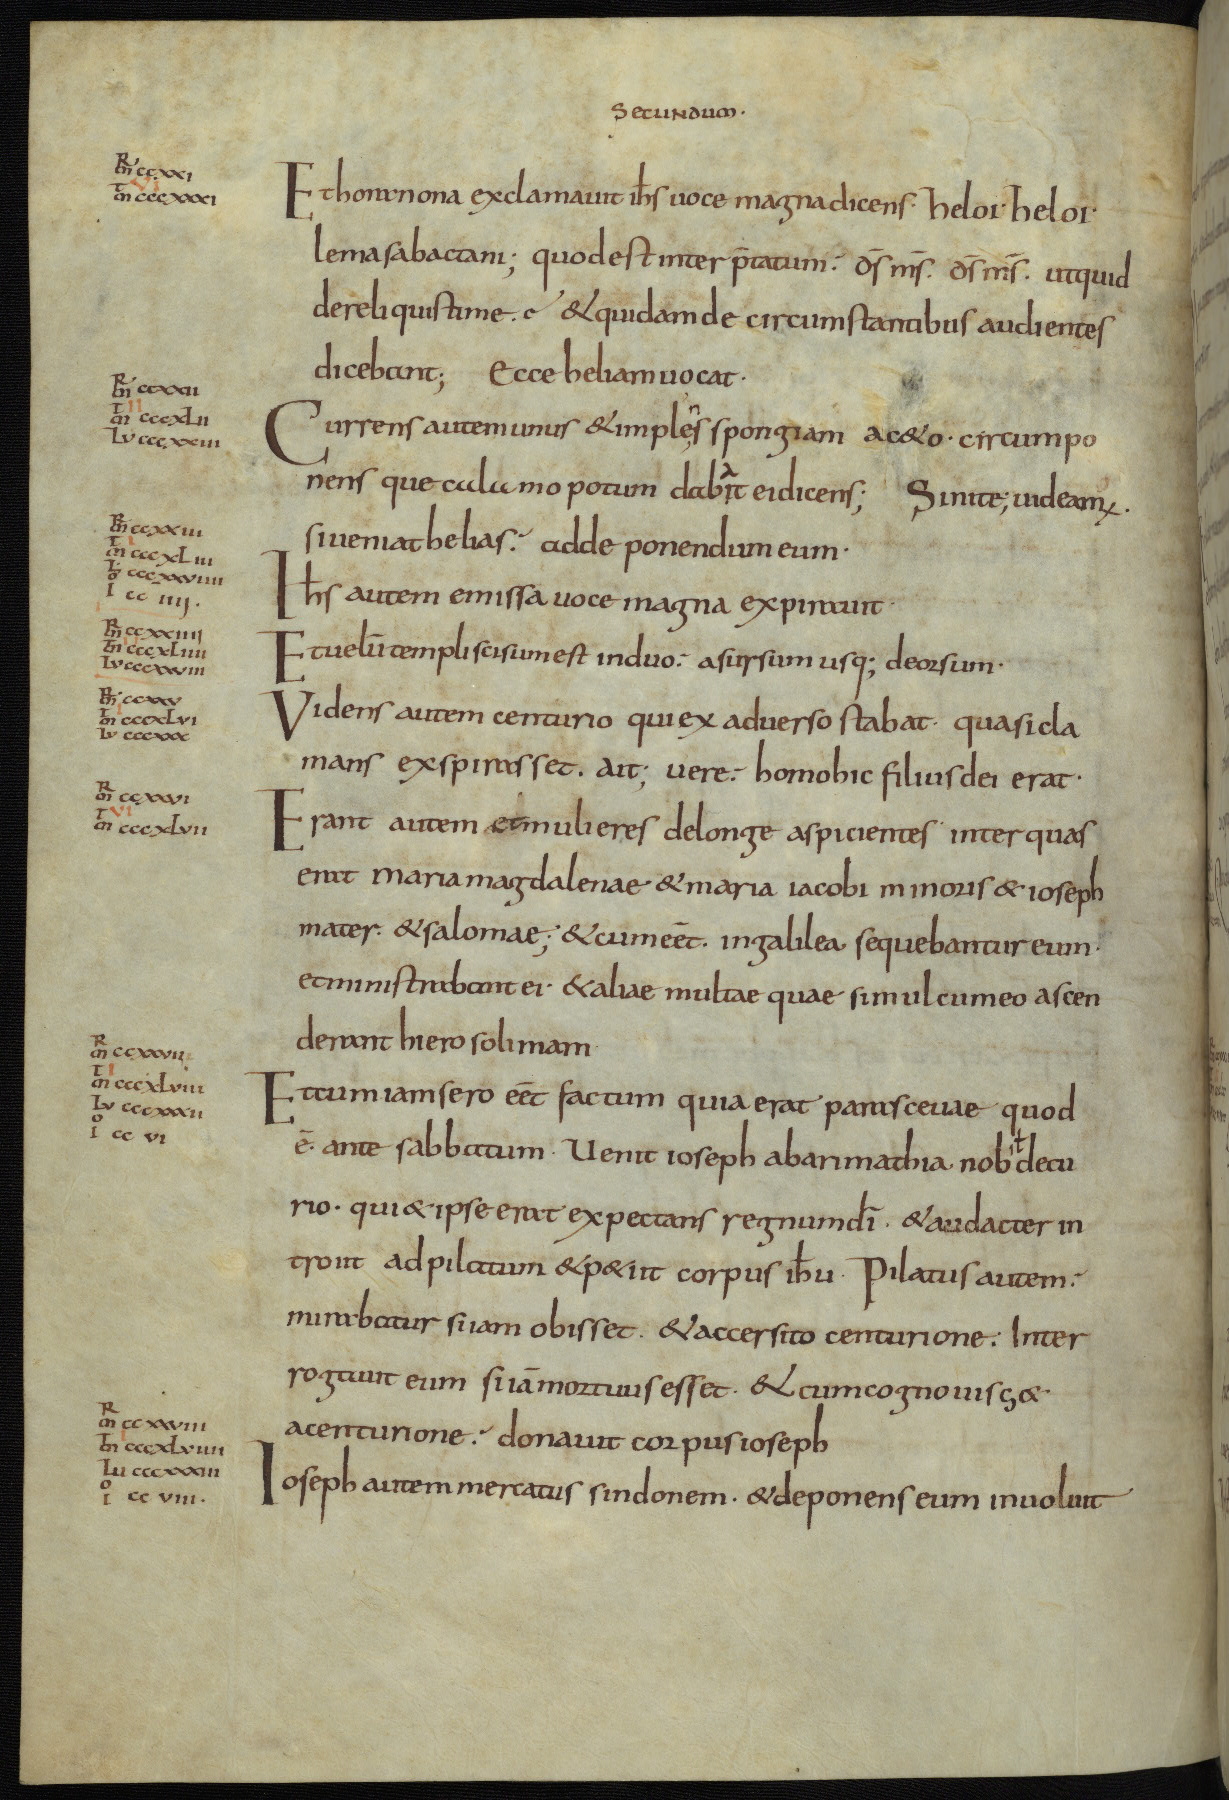 Secundum·
mr ccxxi
vi
mt cccxxxci
Et hora nona exclamauit ihs uoce magna dicens· heloi· heloi·
lema sabactani; quod est inter p̄tatum:̄ d̄s m̄s. d̄s m̄s. utquid
dereliquisti me. ć & quidam de circumstantibus audientes
dicebant; Ecce heliam uocat·
mr ccxxii
ii
mt cccxLii
Lv cccxxiii
Currens autem unus & implęns spongiam ac&o· circumpo
nens que calamo potum dabat ei dicens; Sinite; uideamus.
si ueniat helias:̄ adde ponendum eum·
mr ccxxiii
i
mt cccxLiii
L cccxxviiii
io cc iiii.
Ihs autem emissa uoce magna expirauit·
mr ccxxiiii
mt cccxLiiii
Lv cccxxviii
Et uelū templi scisum est in duo:̄ a sursum usq; deorsum·
mr ccxxv
mt cccxLvi
Lv cccxxx
Videns autem centurio qui ex aduerso stabat· quasi cla
mans exspirasset. ait; uere:̄ homo hic filius dei erat·
mr ccxxvi
vi
mt cccxLvii
Erant autem et mulieres de longe aspicientes inter quas
erat maria magdalenae· & maria iacobi minoris & ioseph
mater· & salomae; & cum eēt· in galilea sequebantur eum·
et ministrabant ei· & aliae multae quae simul cum eo ascen
derant hierosolimam
mr ccxxvii
i
mt cccxLviii
Lv cccxxxii
io cc vi
Et cum iam sero eēt factum quia erat parasceuae quod
ē· ante sabbatum· Uenit ioseph ab arimathia· nobit decu
rio· qui & ipse erat expectans regnum dī· & audacter in
troiit ad pilatum & p&iit corpus ihu· Pilatus autem:̄
mirabatur si iam obisset· & accersito centurione:̄ Inter
rogauit eum si iā mortuus esset· & cum cognouiss&
a centurione:̄ donauit corpus ioseph
mr ccxxviii
i
mt cccxLviiii
Lu cccxxxiii
io cc viii·
Ioseph autem mercatus sindonem· & deponens eum inuoluit